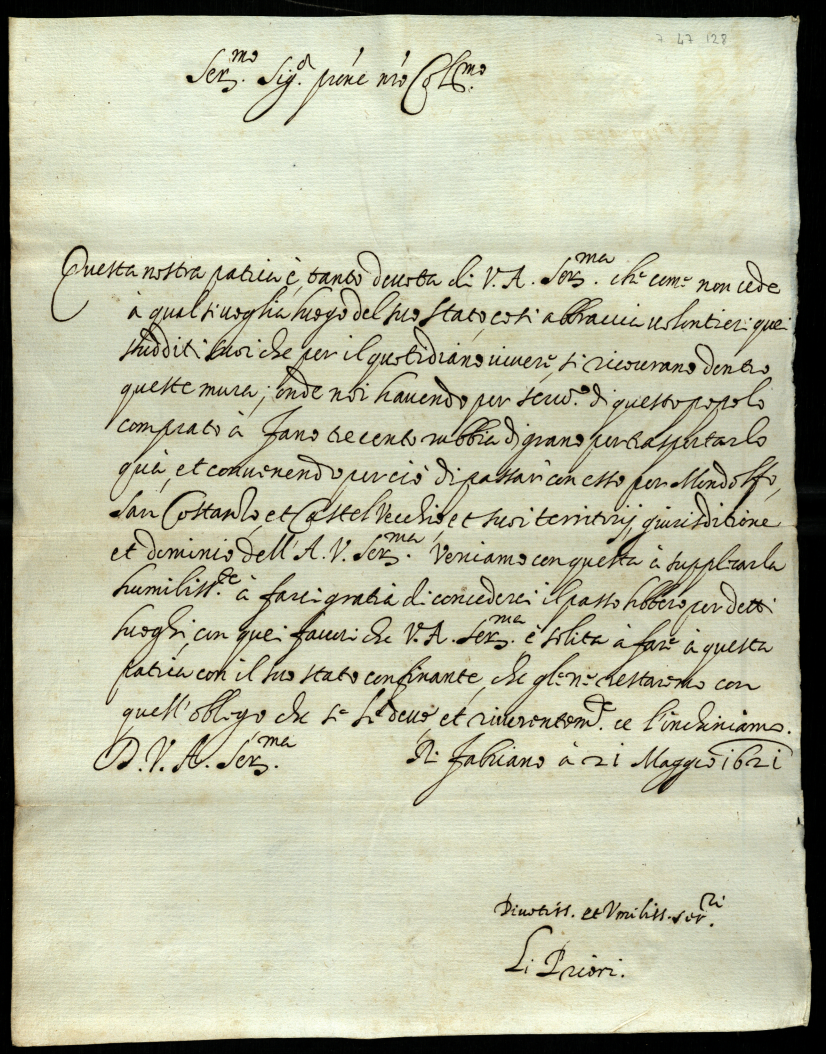 7 47 128
Ser.mo Sig.r prône nrõ Col.mo
Questa nostra patria è, tanto deuota di V. A. Ser.ma che come non cede
à qual si uoglia luogo del suo stato, così abbraccia uolontieri quei
sudditi suoi che per il quotidiano uiuere, si ricourano dentro
queste mura; onde noi hauendo per seru.o di questo popolo
comprato à Fano trecento rubbia di grano per trasportarlo
quà, et conuenendo perciò di passar con esso per Mondolfo,
San Costanzo, et Castel Vecchio, et suoi territorij, giurisditione
et dominio dell'A. V. Ser.ma Veniamo con questa à supplicarla
humiliss.te à farci gratia di concederci il passo libero per detti
luoghi, con quei fauori che V. A. Ser.ma è solita à fare à questa
patria, con il suo stato confinante, che gle ne restaremo con
quell'obligo che se li deue, et riuerentem.te ce l'inchiniamo.
D. V. A. Ser.ma Di Fabriano à 21 Maggio 1621
Diuotiss. et Vmiliss. ser.ri
Li Priori.